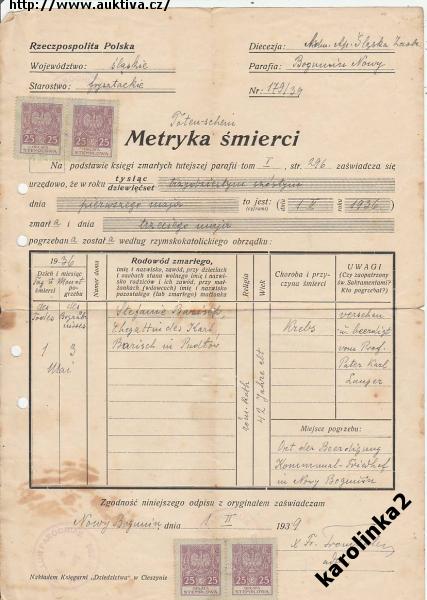 http://www.auktiva.cz/
Rzeczpospolita Polska
Województwo: śląskie
Starostwo: frysztackie
Diecezja: Adm. Ap. Śląska Zaolz.
Parafia: Bogumin Nowy
Nr: 179/39
25 25
25 25
Totenschein
Metryka śmierci
Na podstawie księgi zmarłych tutejszej parafii tom I, str. 296 zaświadcza się
urzędowo, że w roku tysiąc dziewięćset trzydziestym szóstym
dnia pierwszego maja to jest: (cyframi) dnia 1 V roku 1936
zmarła i dnia trzeciego maja
pogrzebana została według rzymskokatolickiego obrządku:
1936
Dzień i miesiąc
śmierci
pogrzebu
Numer domu
Rodowód zmarłego,
imię i nazwisko, zawód, przy dzieciach
i osobach stana wolnego imię i nazwisko
rodziców i ich zawód, przy małżonkach
(wdowcach) imię i nazwisko
pozostałego (lub zmarłego) małżonka
Religia
Wiek
Choroba i przyczyna
śmierci
UWAGI
(Czy zaopatrzony
św. Sakramentami?
Kto pogrzebał?)
des Todes
des Begräbnisses
1 3
Mai
Stefanie Barisch,
Ehegattin des Karl
Barisch in Pudlów
röm. kath.
42 Jahre alt
Krebs
versehen
u. beerdigt
vom Prof.
Pater Karl
Langer
Miejsce pogrzebu:
Ort der Beerdigung
Kommunal-Friedhof
in Nowy Bogumin
Zgodność niniejszego odpisu z oryginałem zaświadczam
Nowy Bogumin dnia 1 II 1939
X Fr.
25 25
25 25
OPŁATA
STEMPLOWA
Nakładem Księgarni „Dziedzictwa" w Cieszynie
karolinka2